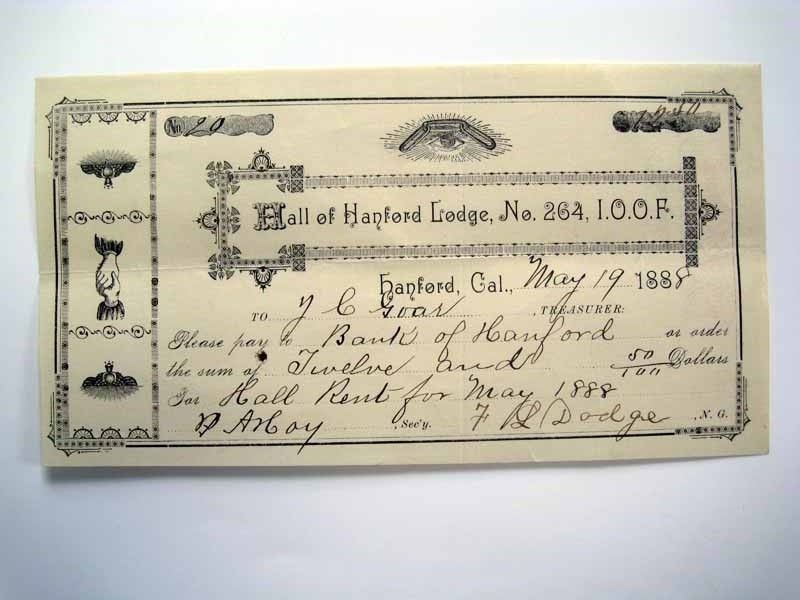 No. 20
Hall of Hanford Lodge, No. 264, I.O.O.F.
Hanford, Cal., May 19 1888
TO Y C Goar, TREASURER:
Please pay to Bank of Hanford or order
the sum of Twelve and 50/100 Dollars
For Hall Rent for May 1888
, Sec'y. F L Dodge, N. G.